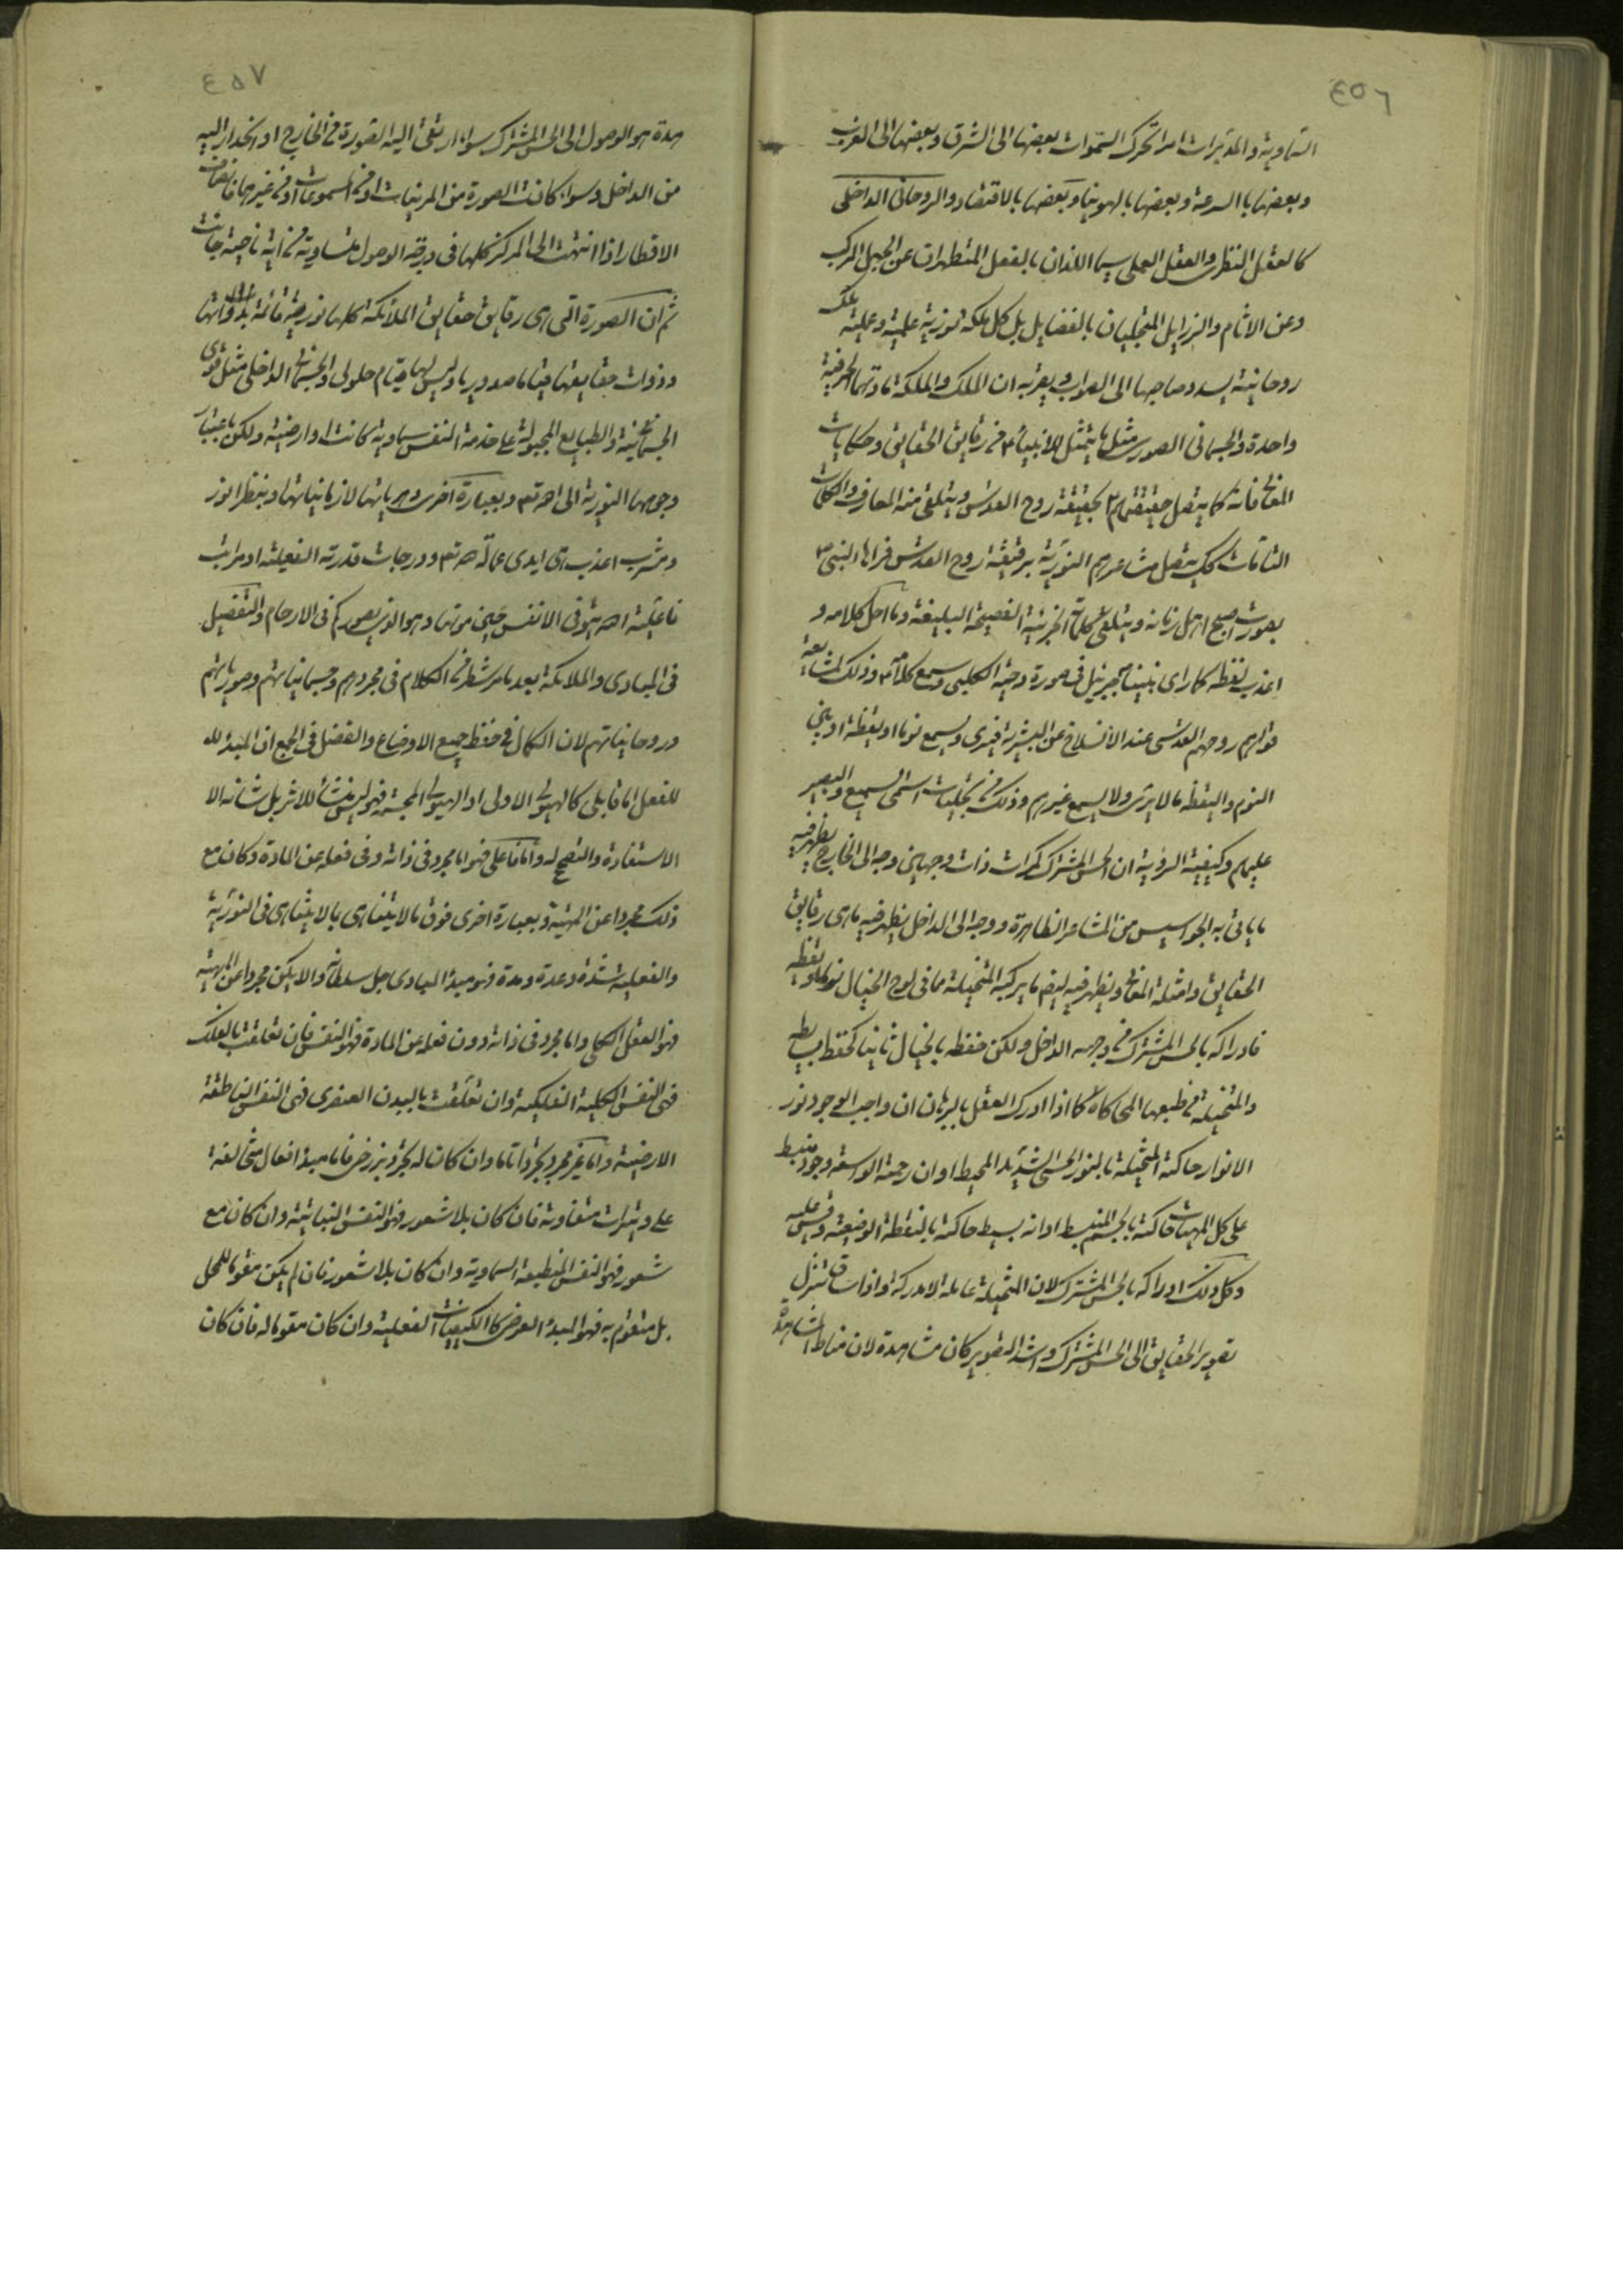 ٤٥٦
السماوية والمدبرات امرا تحرك السموات بعضها الى الشرق وبعضها الى الغرب
وبعضها بالسرعة وبعضها بالهوينا وبعضها بالاقتصاد والروحانى الداخلى
كالعقل النظرى والعقل العملى سيما اللذان بالفعل المتطهران عن الجهل المركب
وعن الاثام والرزايل المتجليان بالفضايل بل كل ملكة نورية علمية وعملية ملك
روحانية يسدد صاحبها الى الصواب ويقربه ان الملك والملكة مادتهما الحرفية
واحدة والجسمانى الصور مثل ما يتمثل للانبياء ع من رقايق الحقايق وحكايات
المعانى فانه كما يتصل حقيقتهم بحقيقة روح القدس ويتلقى منه المعارف والكليات
التامات كك يتصل مشاعرهم النورية برقيقة روح القدس فراها النبى ص
بصورت اصبح اهل زمانه ويتلقى كلماته الجزئية الفصيحة البليغة وما احلى كلامه و
اعذب لفظه كما راى نبينا ص جبرئيل فى صورة دحية الكلبى وسمع كلامه وذلك لمشايعة
قواهم روحهم القدسى عند الانسلاخ عن البشرية فيرى ويسمع نوما او يقظة او بين
النوم واليقظة ما لا يرى ولا يسمع غيرهم وذلك من تجليات اسمى السميع والبصير
عليهم وكيفية الرؤية ان الحس المشترك كمرات ذات وجهين وجه الى الخارج يظهر فيه
ما ياتى به الجواسيس من المشاعر الظاهرة ووجه الى الداخل يظهر فيه ما هى رقايق
الحقايق وامثلة المعانى ويظهر فيه ايضا ما يركبه المتخيلة مما فى لوح الخيال نوما او يقظة
فادراكه بالحس المشترك من وجهه الداخل ولكن حفظه بالخيال ثانيا كحفظ بسايطه
والمتخيلة من طبعها المحاكاة كما اذا ادرك العقل بالبرهان ان واجب الوجود نور
الانوار حاكته المتخيلة بالنور الحسى الشديد المحيط او ان رحمة الواسعة وجود منبسط
على كل المهيات حاكته بالجسم المنبسط او انه بسيط حاكته بالنقطة الوضعية وقس عليه
وكل ذلك ادراكه بالحس المشترك لان المتخيلة عاملة لا مدركة واذا ساق تنزل
تصوير الحقايق الى الحس المشترك واشتد التصوير كان مشاهدة لان مناط المشاهدة
٤٥٧
هدة هو الوصول الى الحس المشترك سواء ارتقى اليه الصورة من الخارج او انحدر اليه
من الداخل وسواء كانت الصورة من المرئيات او من المسموعات او من غيرهما فانصاف
الاقطار اذا انتهت الى المركز كلها فى درجة الوصول متساوية من اية ناحية جائت
ثم ان الصورة التى هى رقايق حقايق الملائكة كلها نورية قائمة بذواتها
وذوات حقايقها قياما صدوريا وليس لها قيام حلولى والجسمانى الداخلى مثل قوى
الجسمانية والطبايع المجبولة على خدمة النفس سماوية كانت او ارضية ولكن باعتبار
وجهها النورية الى الله تع وبعبارة اخرى دهرياتها لا زمانياتها وبنظر انور
ومشرب اعذب هى ايدى عمالة لله تع ودرجات قدرته الفعلية او مراتب
فاعلية الله يتوفى الانفس حين موتها وهو الذى يصوركم فى الارحام والتفصيل
فى المبادى والملائكة بعد ما مر شطر من الكلام فى مجردهم وجسمانياتهم وصورياتهم
وروحانياتهم لان الكمال فى حفظ جميع الاوضاع والفضل فى الجمع ان المبدء له
للفعل اما قابلى كالهيولى الاولى او الهيولى المجسمة فهو ليس منشأ للاثر بل شانه الا
الاستفادة والتصحح له واما فاعلى فهو اما مجرد فى ذاته وفى فعله عن المادة وكان مع
ذلك مجردا عن المهية وبعبارة اخرى فوق ما لا يتناهى بما لا يتناهى فى النورية
والفعلية شدة وعدة ومدة فهو مبدء المبادى جل سلطانه والا يكن مجردا عن المهية
فهو العقل الكلى واما مجرد فى ذاته دون فعله عن المادة فهو النفس فان تعلقت بالفلك
فهى النفس الكلية الفلكية وان تعلقت بالبدن العنصرى فهى النفس الناطقة
الارضية واما غير مجرد تجردا تاما وان كان له تجرد برزخى فاما مبدء افعال متخالفة
على وتيرات متفاوتة فان كان بلا شعور فهو النفس النباتية وان كان مع
شعور فهو النفس المنطبعة السماوية وان كان بلا شعور فان لم يكن مقوما للمحل
بل متقوم به فهو المبدء العرضى كالكيفيات الفعلية وان كان مقوما له فان كان